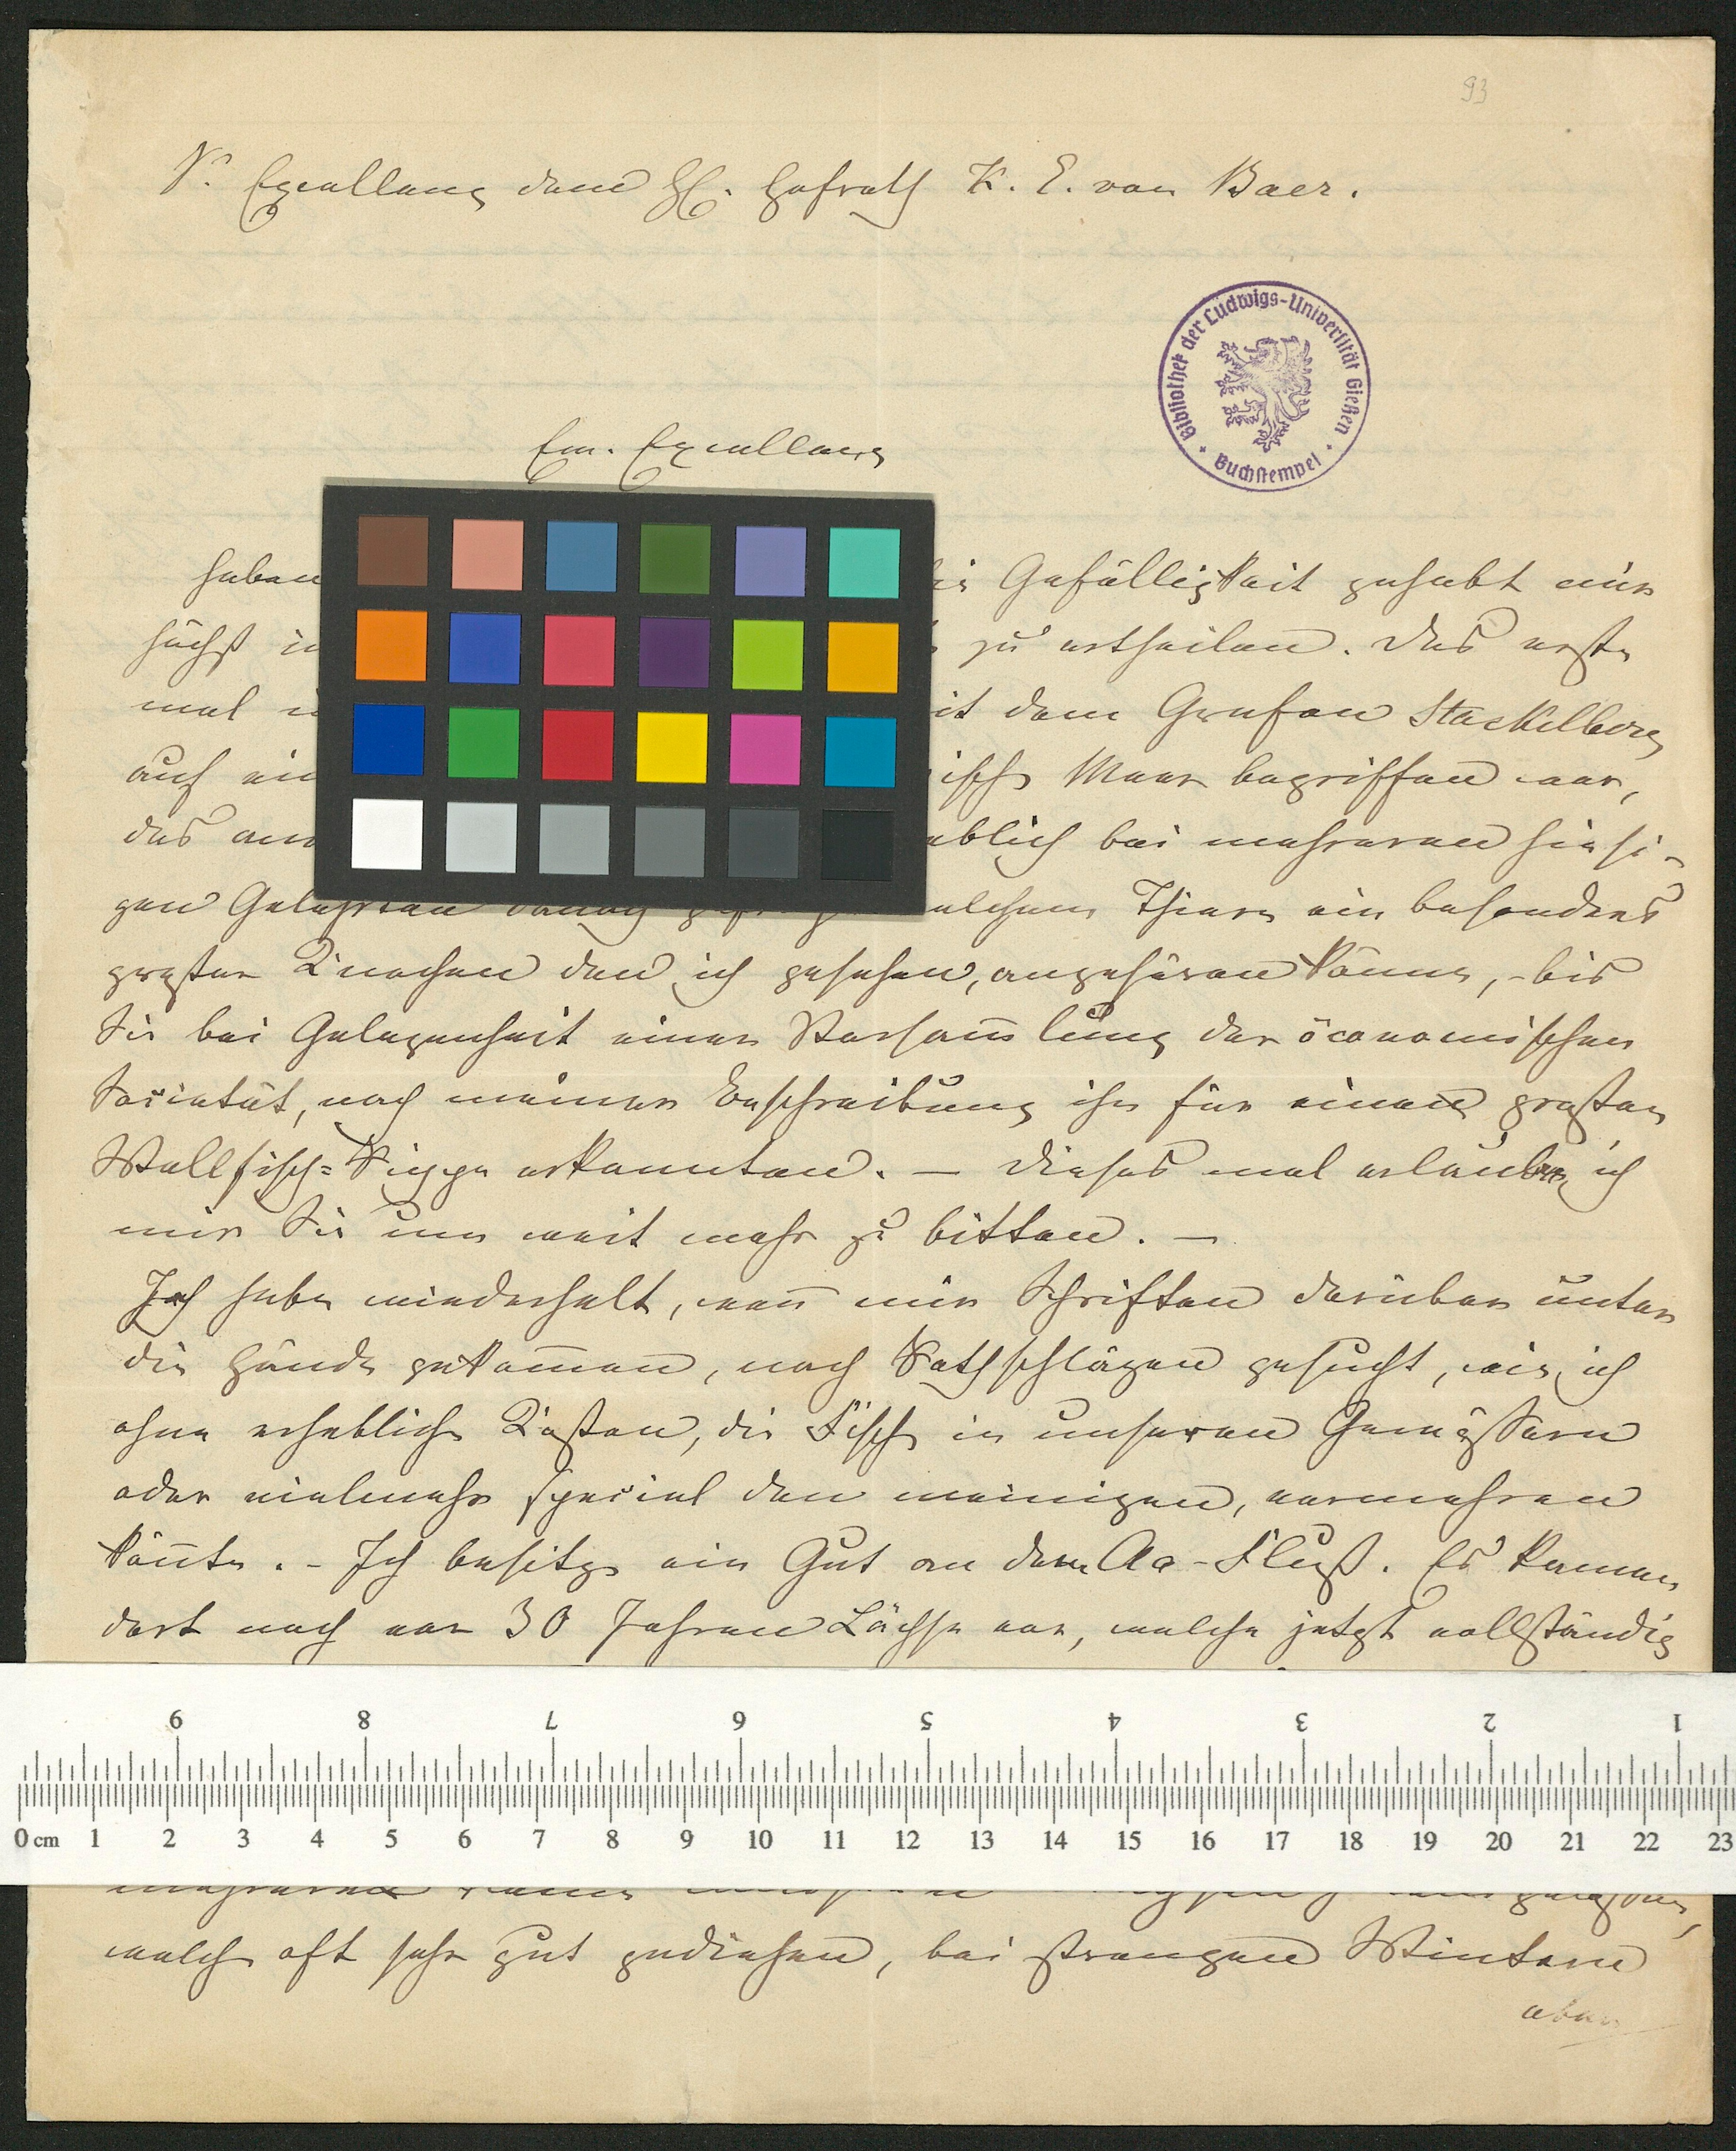 93
Sr. Excellenz dem H. Hofrath K. E. von Baer.
Bibliothek der Ludwigs-Universität Gießen
Buchstempel
Ew. Excellenz
haben die Gefälligkeit gehabt mir
höchst zu ertheilen. Das erste
mal mit dem Grafen Stackelberg
auf Meer begriffen war,
das bei mehreren hiesi-
gen Gelehrten welchem Thiere ein besonders
großer Knochen den ich gesehen, angehören könne, - bis
Sie bei Gelegenheit einer Versam̅lung der öconomischen
Societät, nach meiner Beschreibung ihn für einen großen
Wallfisch-Rippe erkannten. — Dieses mal erlaube ich
mir Sie um weit mehr zu bitten. —
Ich habe wiederholt, wen̅ mir Schriften darüber unter
die Hände gekom̅en, nach Rathschlägen gesucht, wie ich
ohne erhebliche Kosten, die Fische in unseren Gewässern
oder vielmehr special den meinigen, vermehren
kön̅te. - Ich besitze ein Gut an dem Aa-Fluß. Es kamen
dort noch vor 30 Jahren Lächse vor, welche jetzt vollständig
9 8 7 6 5 4 3 2 1
0 cm 1 2 3 4 5 6 7 8 9 10 11 12 13 14 15 16 17 18 19 20 21 22 23
welche oft sehr gut gediehen, bei strengen Wintern
aber